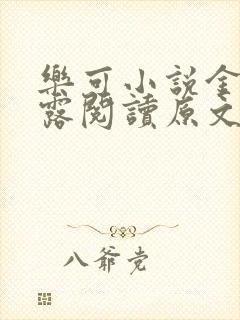 樂可小說金
露閱讀原文
八爺党